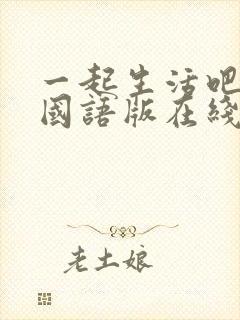 一起生活吧
國語版在綫
老土娘